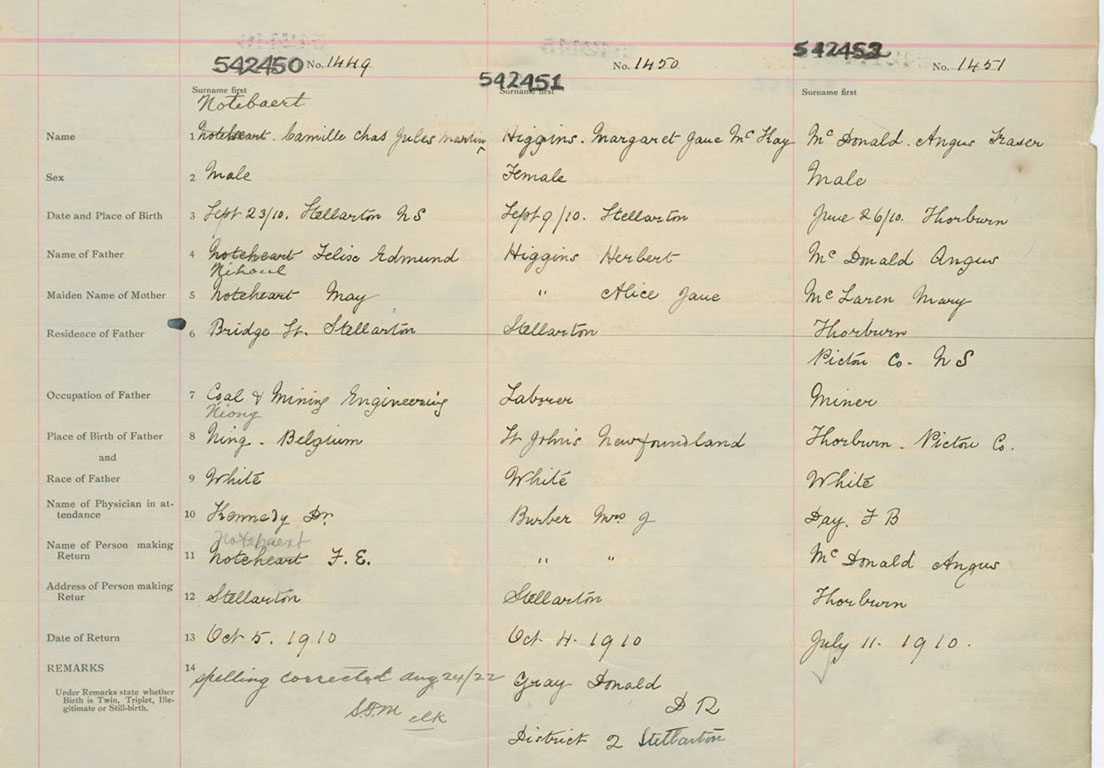 542450 No. 1449
542451 No. 1450
542452 No. 1451
Surname first Surname first Surname first
Notebaert
Name 1 Noteheart. Camille Chas Jules Martin Higgins. Margaret Jane McKay McDonald. Angus Fraser
Sex 2 Male Female Male
Date and Place of Birth 3 Sept 23/10. Stellarton NS Sept 9/10. Stellarton June 26/10. Thorburn
Name of Father 4 Noteheart Felise Edmund Higgins Herbert McDonald Angus
Nihoul
Maiden Name of Mother 5 Noteheart May " Alice Jane McLaren Mary
Residence of Father 6 Bridge St. Stellarton Stellarton Thorburn
Pictou Co. NS
Occupation of Father 7 Coal & Mining Engineering Laborer Miner
Niong
Place of Birth of Father 8 Ning - Belgium St John's Newfoundland Thorburn - Pictou Co.
and
Race of Father 9 White White White
Name of Physician in at-
tendance 10 Kennedy Dr. Burber Mrs J Day. F B
Notebaert
Name of Person making
Return 11 Noteheart F. E. " " McDonald Angus
Address of Person making
Retur 12 Stellarton Stellarton Thorburn
Date of Return 13 Oct 5. 1910 Oct 4. 1910 July 11. 1910.
REMARKS 14 spelling corrected Aug 24/22 Gray Donald
Under Remarks state whether
Birth is Twin, Triplet, Ille-
gitimate or Still-birth.
clk D R
District 2 Stellarton